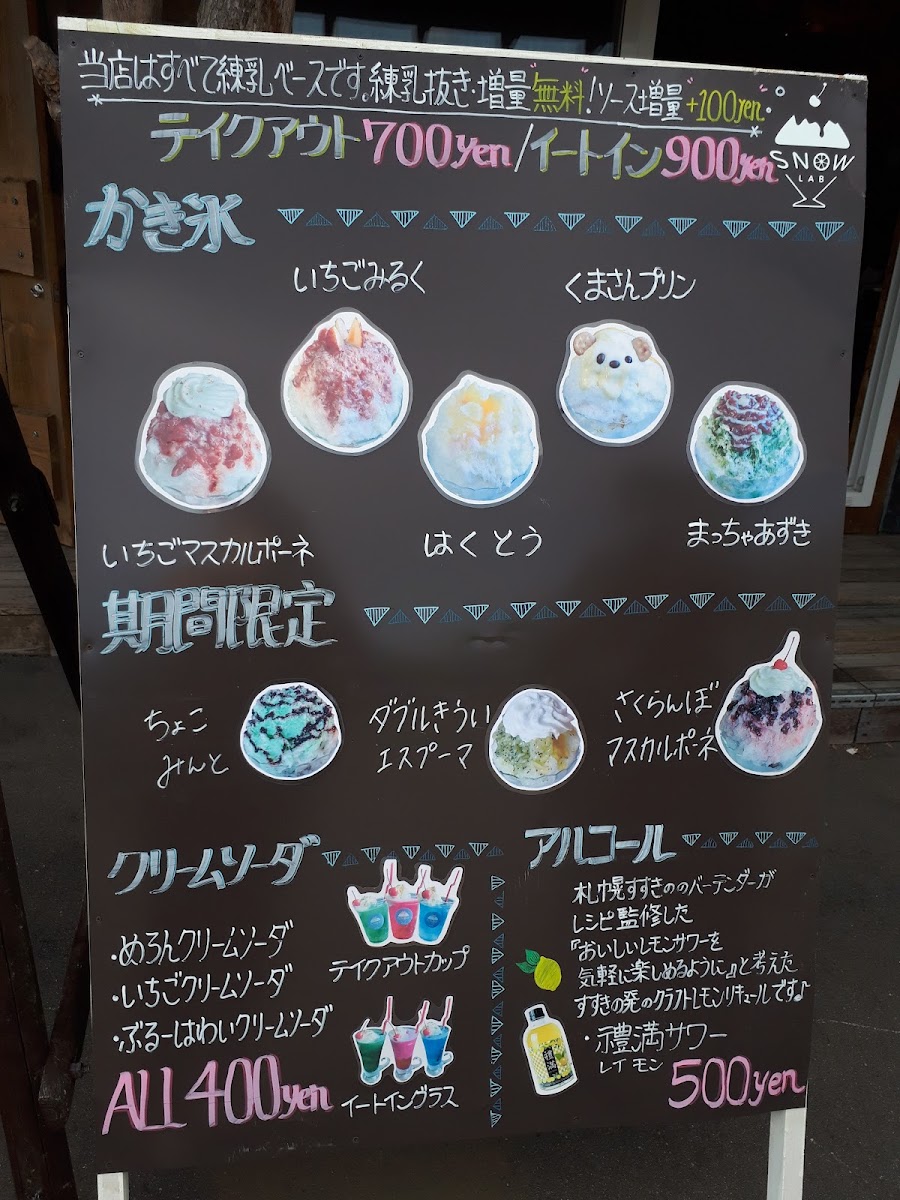 当店はすべて練乳ベースです。練乳抜き・増量"無料"!ソース増量+100yen
テイクアウト700yen/イートイン900yen
SNOW
LAB
かき氷
いちごみるく
くまさんプリン
いちごマスカルポーネ
はくとう
まっちゃあずき
期間限定
ちょこ
みんと
ダブルきうい
エスプーマ
さくらんぼ
マスカルポーネ
クリームソーダ
・めろんクリームソーダ
・いちごクリームソーダ
・ぶるーはわいクリームソーダ
ALL400yen
テイクアウトカップ
イートイングラス
アルコール
札幌すすきののバーテンダーが
レシピ監修した
『おいしいレモンサワーを
気軽に楽しめるように』と考えた
すすきの発のクラフトレモンリキュールです♪
・禮満サワー
レイモン
500yen